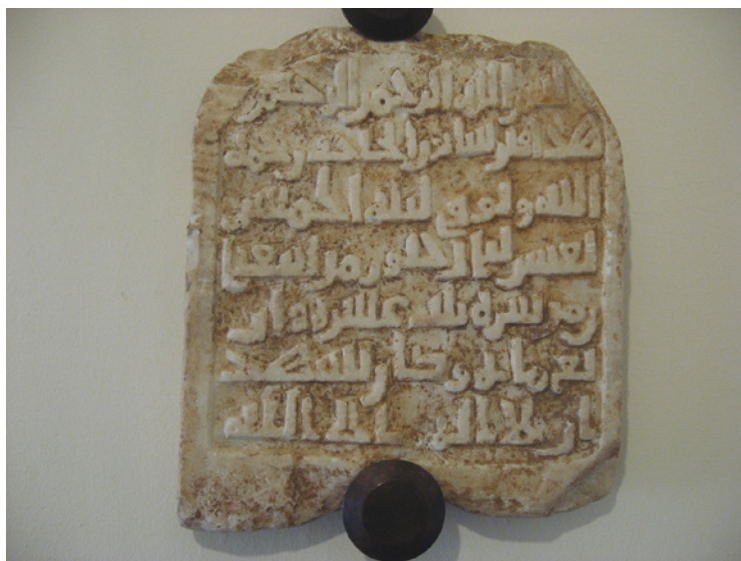 بسم الله الرحمن الرحيم
هذا قبر الحاجب رحمه
الله وتوفي ليلة الخميس
لعشر خلون من شعبا
ن من سنة ثلث عشرة وأر
بع مائة وكان يشهد
أن لا إله إلا الله